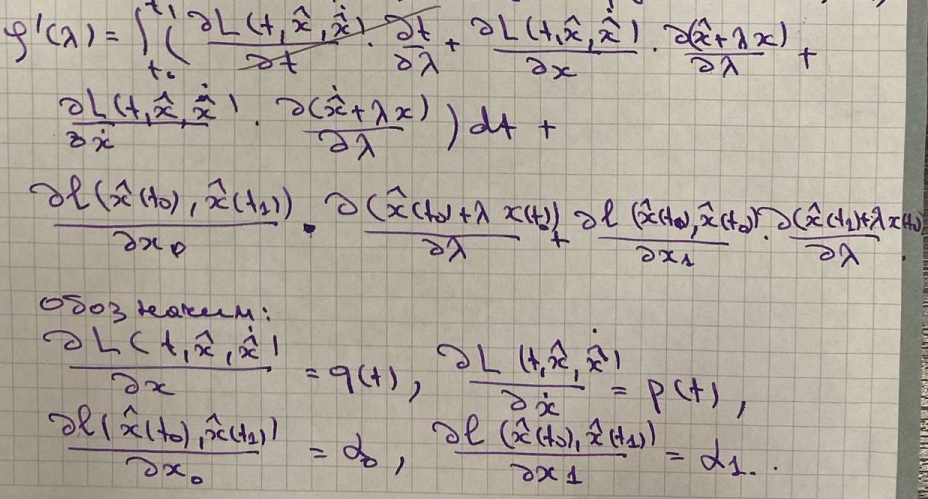 φ'(λ) = ∫_{t₀}^{t₁} ( ∂L(t, x̂, ẋ̂)/∂t · ∂t/∂λ + ∂L(t, x̂, ẋ̂)/∂x · ∂(x̂+λx)/∂λ +
∂L(t, x̂, ẋ̂)/∂ẋ · ∂(ẋ̂+λx)/∂λ ) dt +
∂l(x̂(t₀), x̂(t₁))/∂x₀ · ∂(x̂(t₀)+λ x(t₀))/∂λ + ∂l(x̂(t₀), x̂(t₀))/∂x₁ · ∂(x̂(t₁)+λx(t₀))/∂λ.
обозначим:
∂L(t, x̂, ẋ̂)/∂x = q(t), ∂L(t, x̂, ẋ̂)/∂ẋ = p(t),
∂l(x̂(t₀), x̂(t₁))/∂x₀ = α₀, ∂l(x̂(t₀), x̂(t₁))/∂x₁ = α₁..